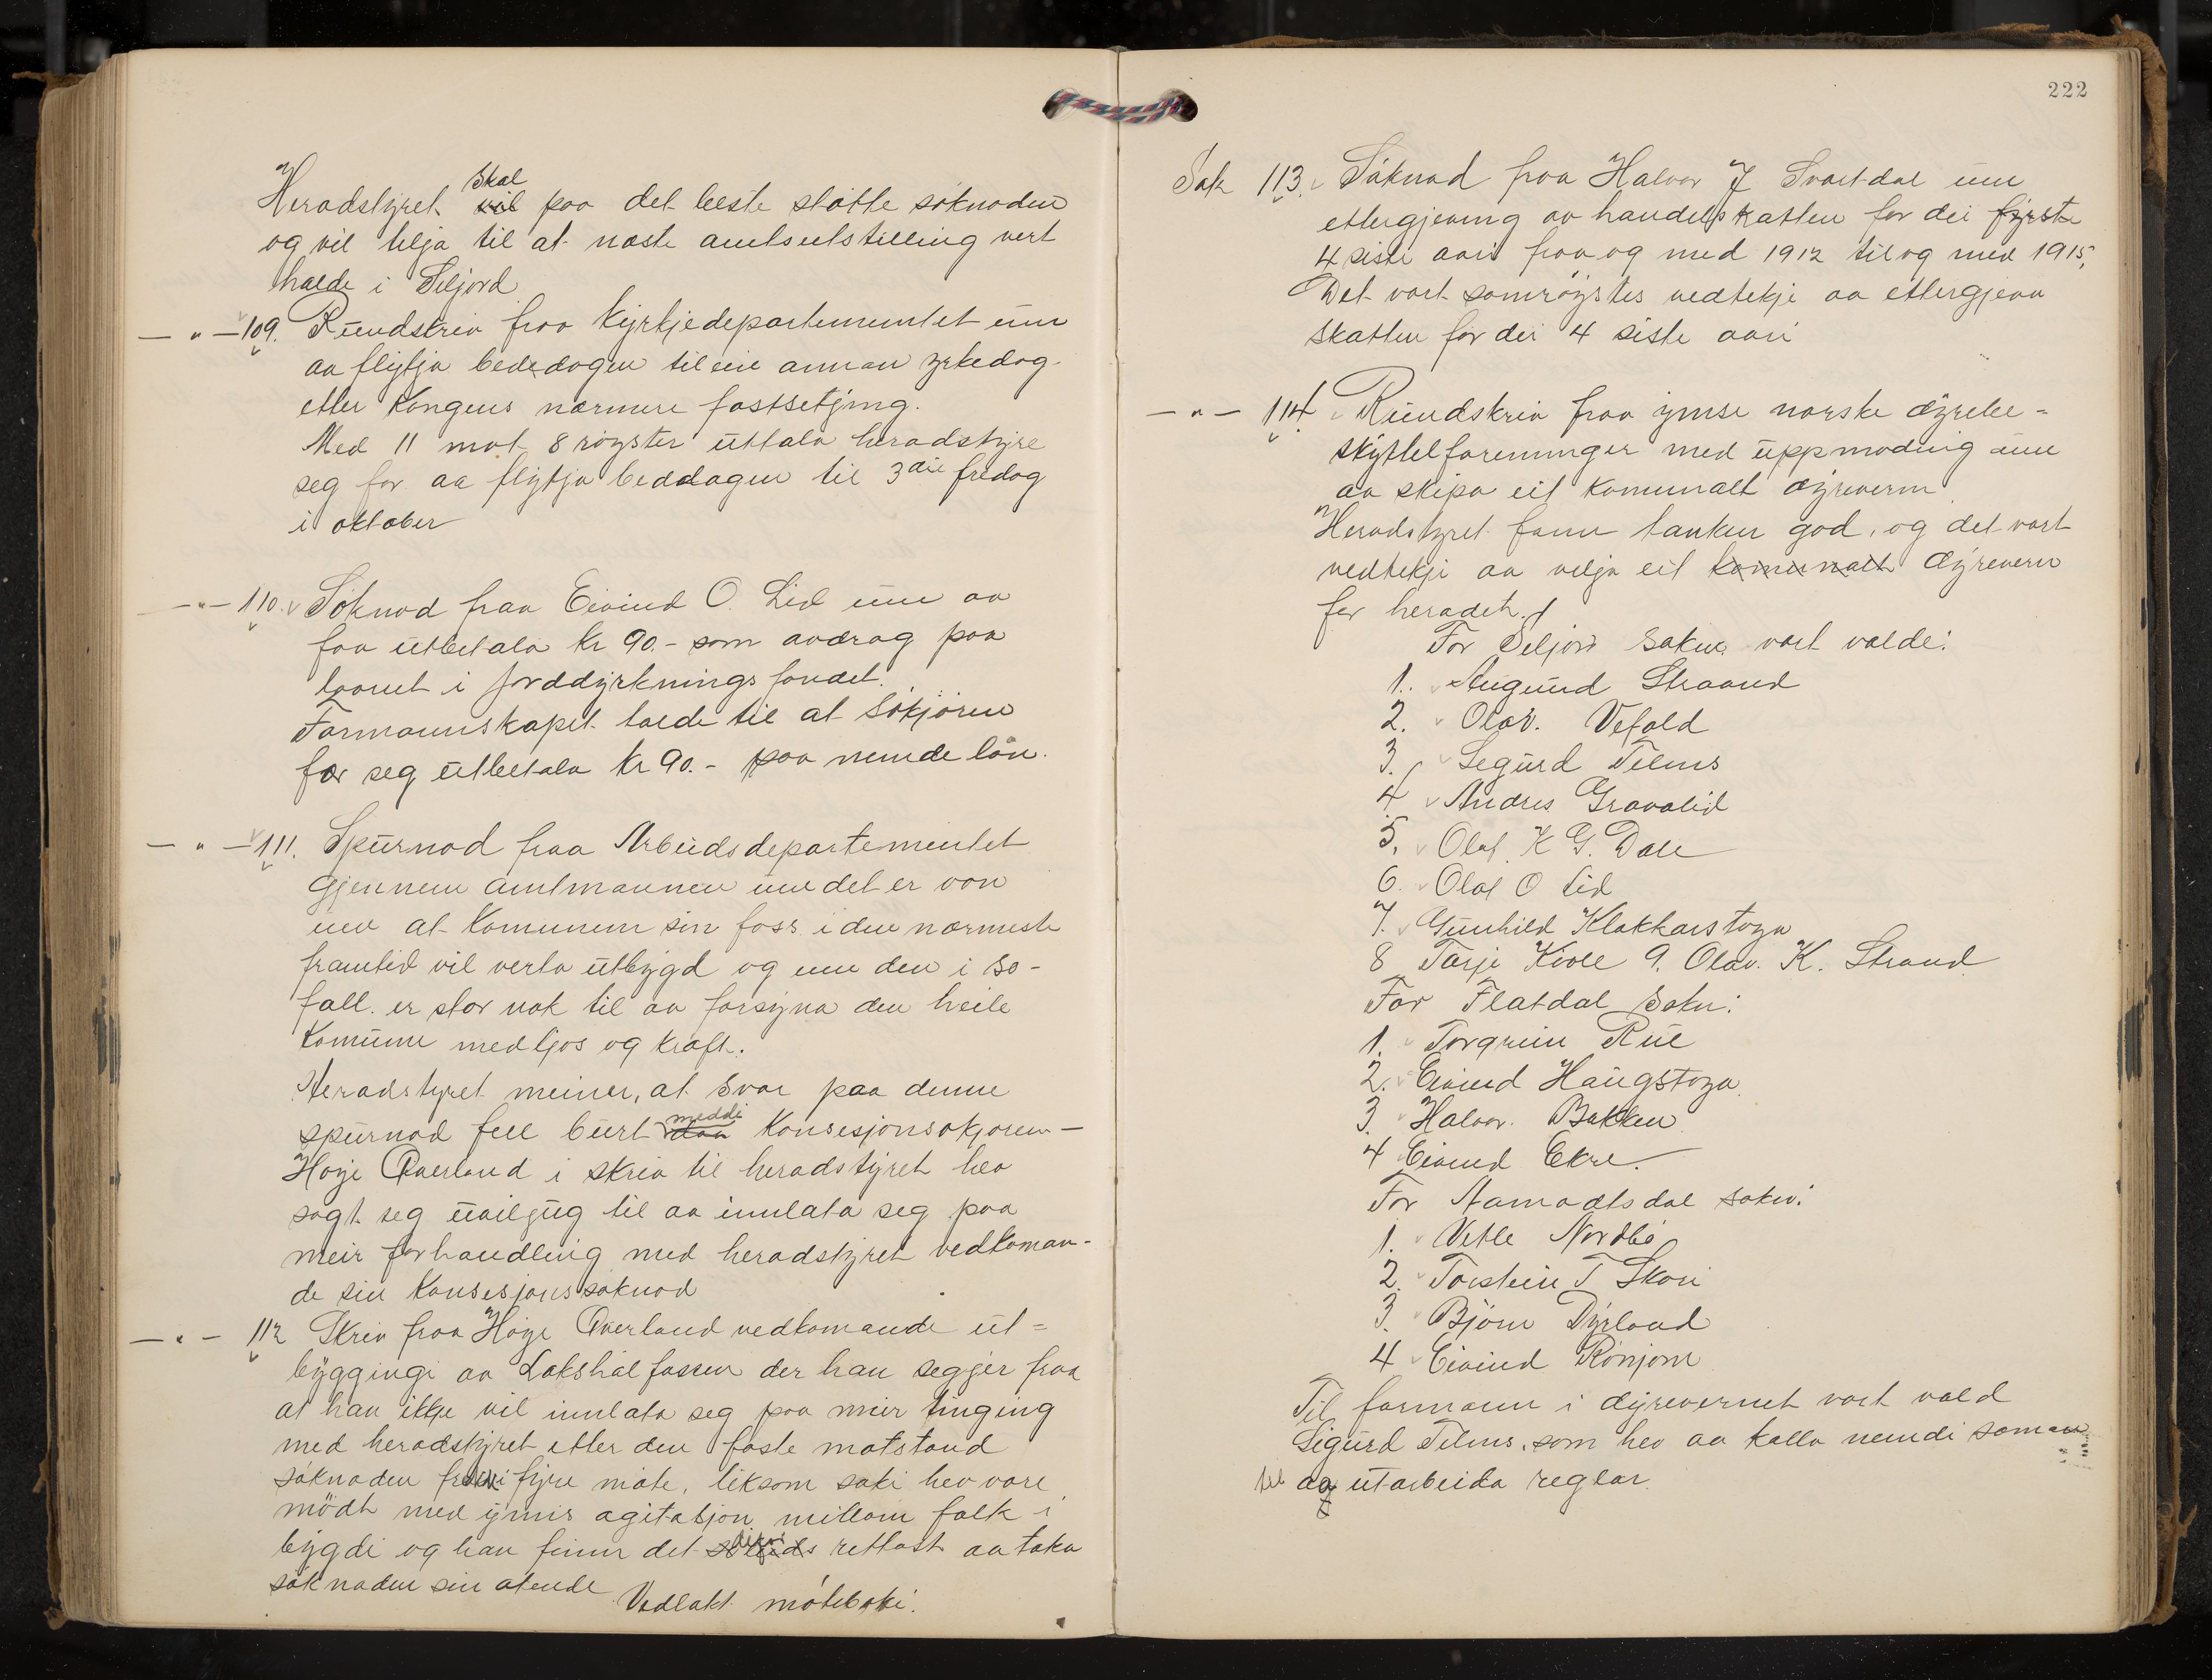 Heradstyret skal paa det beste støtte søknaden
og vil tilja til at næste amtsutstilling vert
halde i Seljord
— " — 109. Rundskriv fraa Kyrkjedepartementet um
aa flytja bededagen til ein annan yrkedag
etter Kongens nærmere fastsetjing.
Med 11 mot 8 røyster uttala heradstyre
seg for aa flytja beddagen til 3die fredag
i oktober
— " — 110. Søknad fraa Eivind O. Lid um aa
faa utbetala kr 90.- som avdrag paa
laanet i jorddyrkningsfondet.
Formannskapet raade til at søkjaren
fær seg utbetala kr 90.- paa nemde lån.
— " — 111. Spurnad fraa Arbeidsdepartementet
gjennem amtmannen um det er von
um at Komunen sin foss i den nærmeste
framtid vil verta utbygd og um den i so-
fall er stor nok til aa forsyna den heile
Komune med ljos og kraft.
Heradstyret meiner, at svar paa denne
spurnad fell burt meddi Konsesjonsøkjaren —
Høye Qverland i skriv til heradstyret hev
sagt seg uviljug til aa innlata seg paa
meir forhandling med heradstyret vedkoman-
de sin Konsesjonssøknad
— " — 112 Skriv fraa Høye Qverland vedkomande ut=
byggingi av Lakshølfossen der han seggjer fraa
at han ikkje vil innlata seg paa meir tinging
med heradstyret etter den faste motstand
søknaden fekk i fyrre møte, liksom saki hev vore
mødt med ymis agitasjon millom folk i
bygdi og han finn det difor rettast aa taka
søknaden sin atende Vedlakt møteboki.
222
Sak 113. Søknad fraa Halvor J Svartdal um
ettergjeving av handelsskatten for dei fyrste
4 siste aari fraa og med 1912 til og med 1915,
Det vart samrøystes vedtekje aa ettergjeva
skatten for dei 4 siste aari
— " — 114 Rundskriv fraa ymse norske dyrebe=
skyttelforeninger med uppmoding um
aa skipa eit komunalt dyrevern.
Heradstyret fann tanken god, og det vart
vedtekje aa velja eit komunalt dyrevern
for heradet.
For Seljord sokn vart valde:
1. Augund Straand
2. Olav. Vefald
3. Sigurd Telnes
4. Andres Gravalid
5. Olaf. K G. Dale
6. Olaf O Lid
7. Gunhild Klakkarstoga
8 Tarje Kivle 9. Olav. K. Strand
For Flatdal sokn:
1. Torgrim Rue
2. Eivind Haugstoga
3. Halvor. Bakken
4 Eivind Ekre.
For Aamodtsdal sokn:
1. Vetle Nordbø
2. Torstein T Skori
3. Bjørn Dyrland
4 Eivind Rønjom
Til formann i dyrevernet vart vald
Sigurd Telnes. som hev aa kalla nemdi saman
til aa utarbeida reglar.